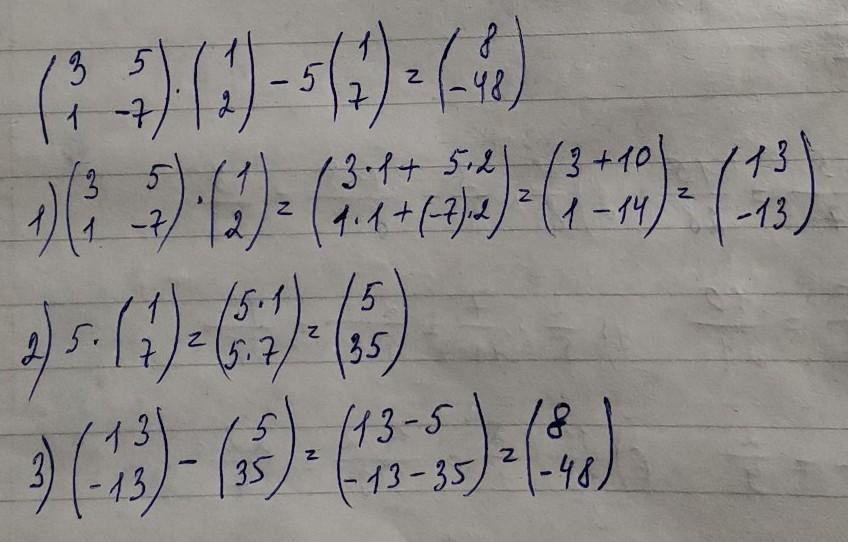 (3 5; 1 -7) · (1; 2) - 5 (1; 7) = (8; -48)
1) (3 5; 1 -7) · (1; 2) = (3·1 + 5·2; 1·1 + (-7)·2) = (3 + 10; 1 - 14) = (13; -13)
2) 5 · (1; 7) = (5·1; 5·7) = (5; 35)
3) (13; -13) - (5; 35) = (13 - 5; -13 - 35) = (8; -48)